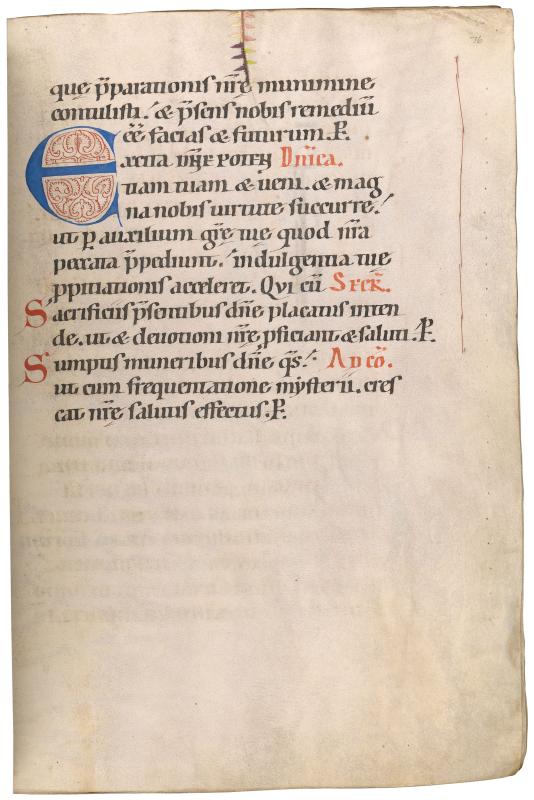 76
que p̄parationis nr̄ę munimine
contulisti. & p̄sens nobis remediū
ēē facias & futurum. P.
EXCITA DN̄E POTEN Dn̄ica.
tiam tuam & ueni. & mag
na nobis uirtute succurre.
ut p auxilium gr̄ę tuę quod nr̄a
peccata p̄pediunt. indulgentia tuę
ppitiationis acceleret. Qui cū SECR̄.
Sacrificiis p̄sentibus dn̄e placatus inten
de. ut & deuotioni nr̄ę pficiant & saluti. P.
Sumptis muneribus dn̄e qs̄. AD CŌ.
ut cum frequentatione mẏsterii. cres
cat nr̄ę salutis effectus. P.